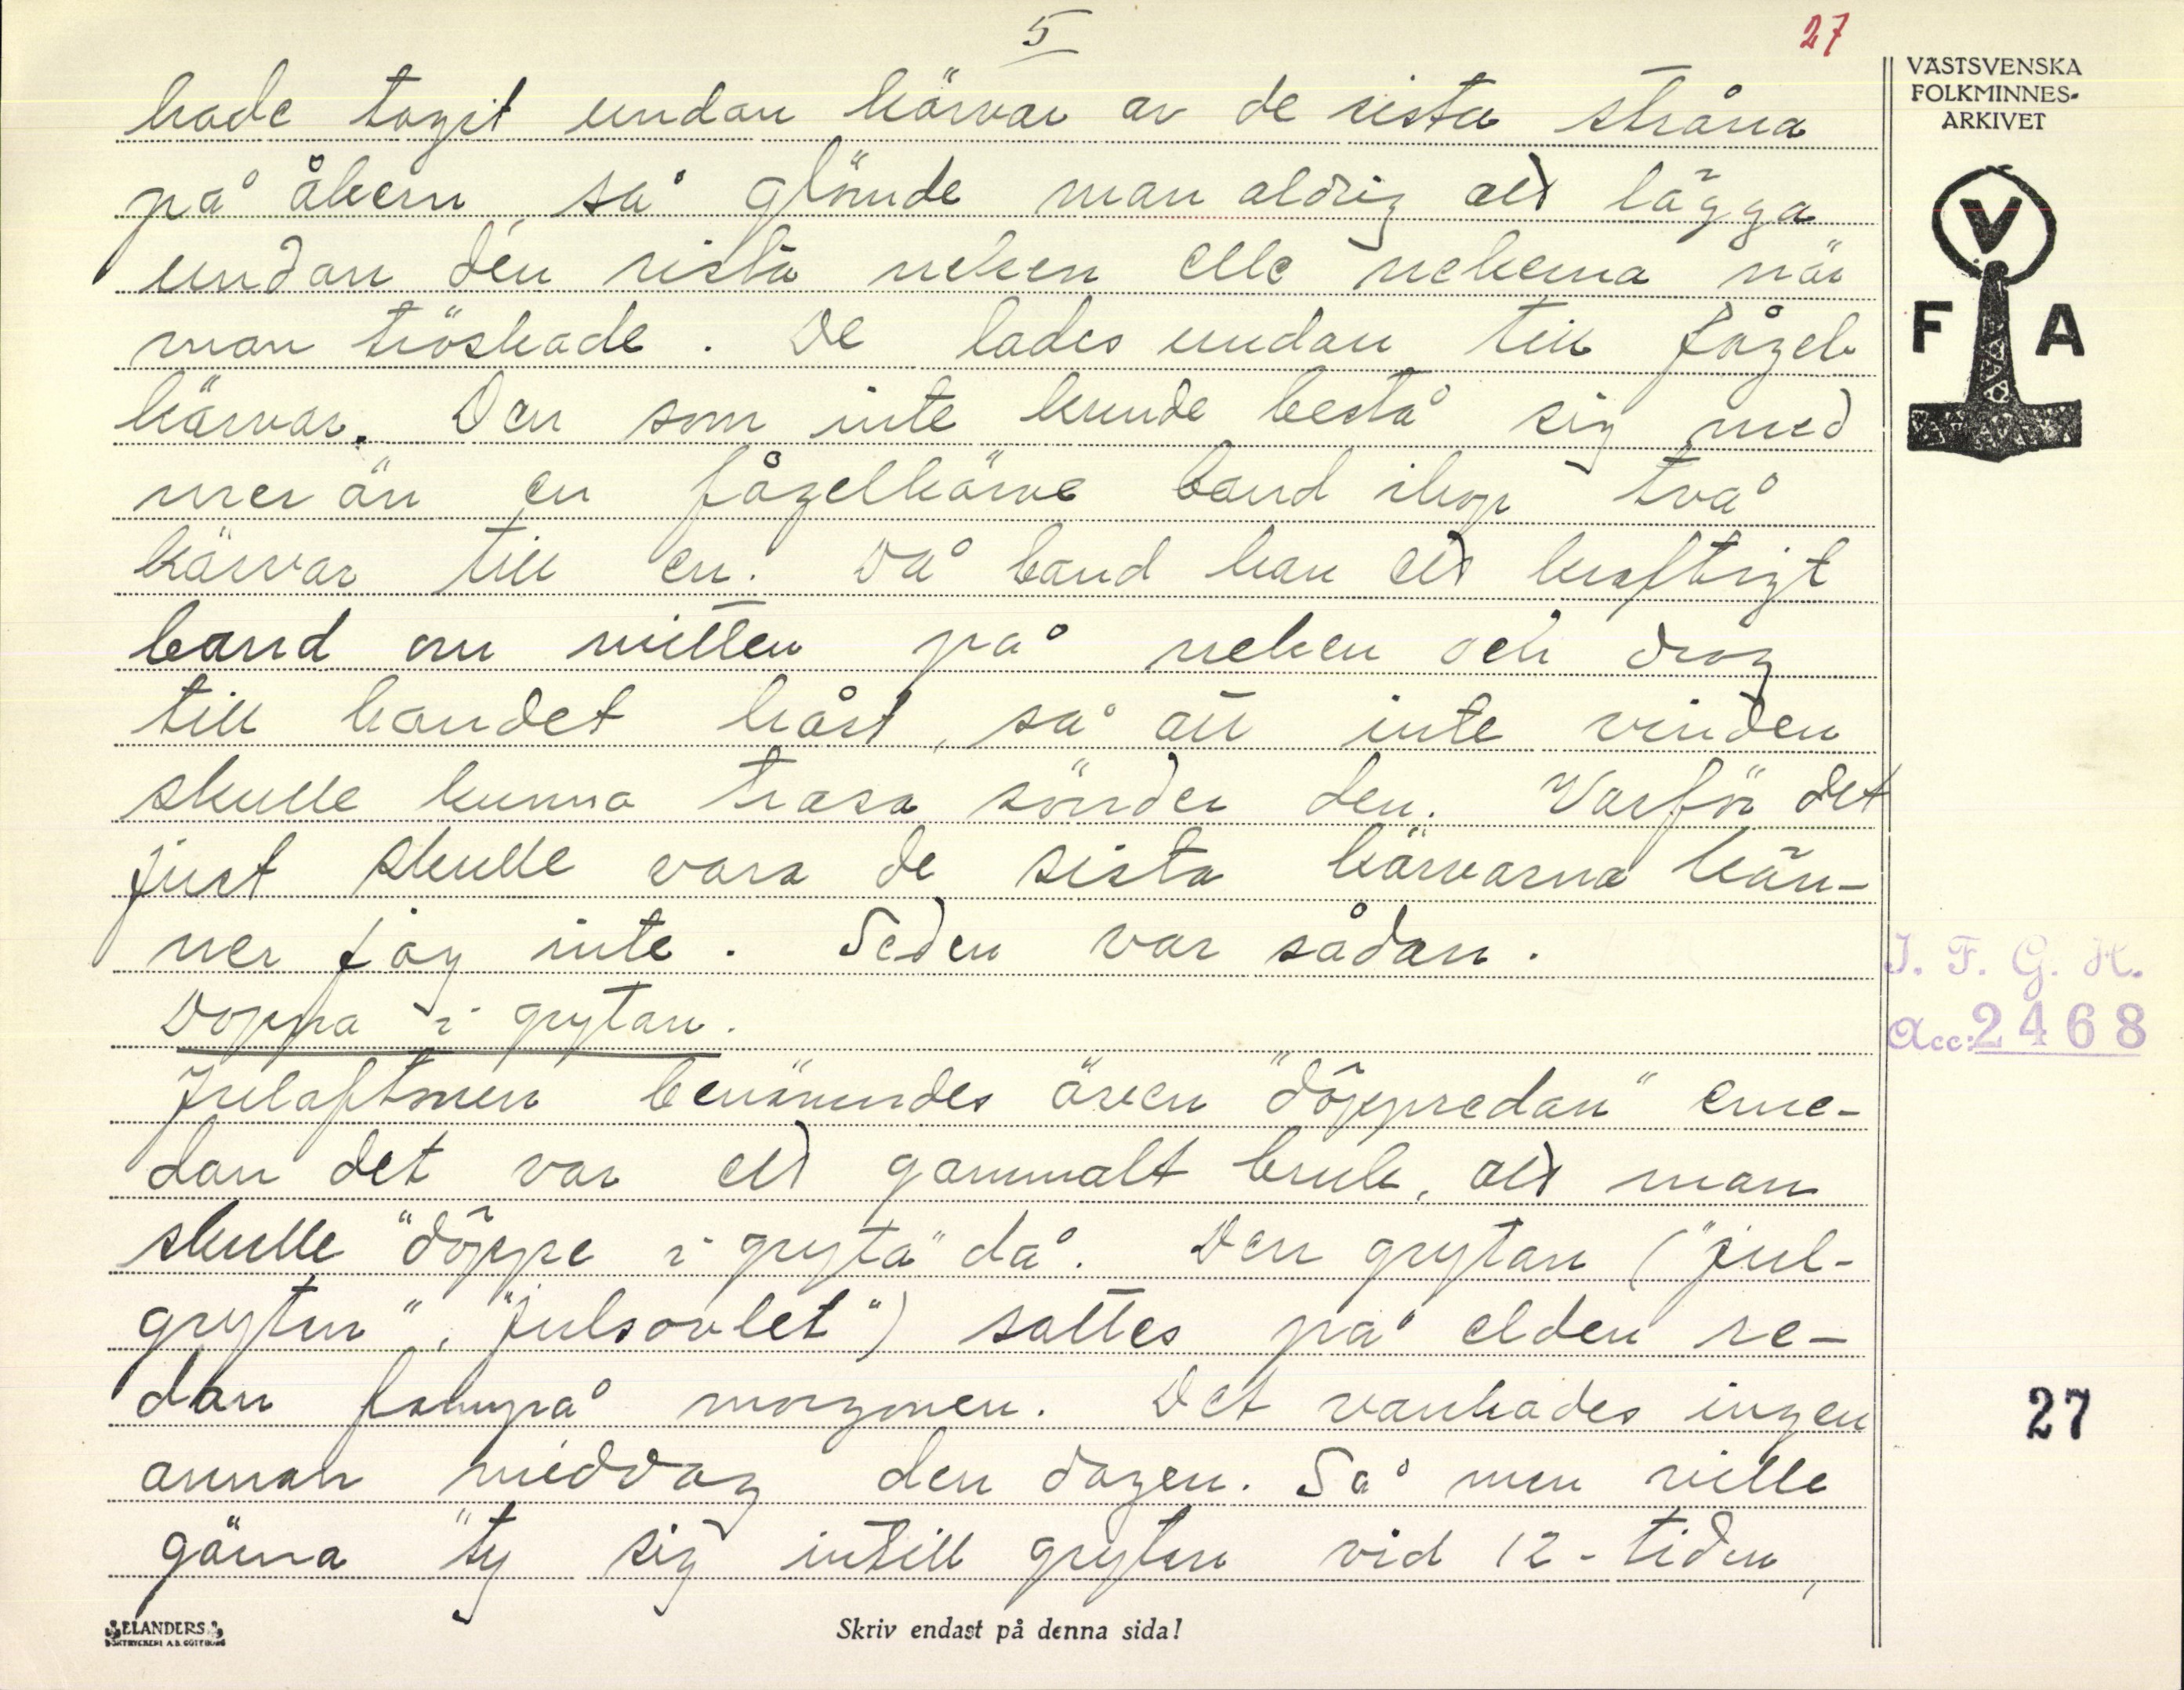 5
27
VÄSTSVENSKA
FOLKMINNES-
ARKIVET
V
F A
hade tagit undan kärvar av de sista stråna
på åkern, så glömde man aldrig att lägga
undan den sista neken elle nekerna när
man tröskade. De lades undan till fågel
kärvar. Den som inte kunde bestå sig med
mer än en fågelkärve band ihop två
kärvar till en. Då band han ett kraftigt
band om mitten på neken och drog
till bandet hårt, så att inte vinden
skulle kunna trasa sönder den. Varför det
just skulle vara de sista kärvarna kän-
ner jag inte. Seden var sådan.
Doppa i grytan.
Julaftonen benämndes även "döppredan" eme-
dan det var ett gammalt bruk, att man
skulle "döppe i gryta" då. Den grytan ("jul-
grytan", "julsovlet") sattes på elden re-
dan frampå morgonen. Det vankades ingen
annan middag den dagen. Så men ville
gärna "ty sig intill grytan vid 12-tiden,
J. F. G. H.
Acc: 2468
27
ELANDERS
BOKTRYCKERI A.B. GÖTEBORG
Skriv endast på denna sida!